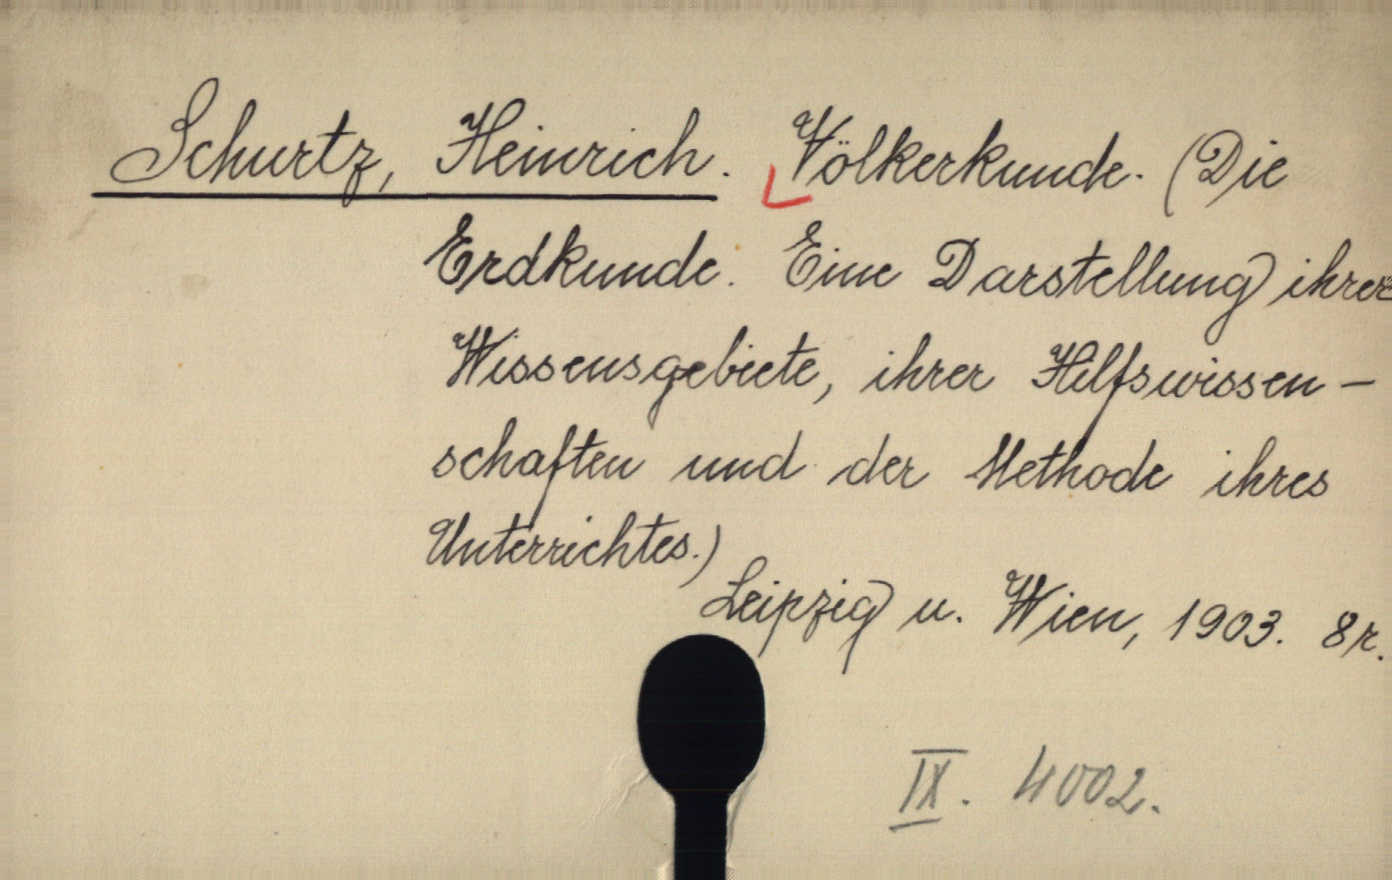 Schurtz, Heinrich. Völkerkunde. (Die
Erdkunde. Eine Darstellung ihrer
Wissensgebiete, ihrer Hilfswissen-
schaften und der Methode ihres
Unterrichtes.)
Leipzig u. Wien, 1903. 8r.
IX. 4002.